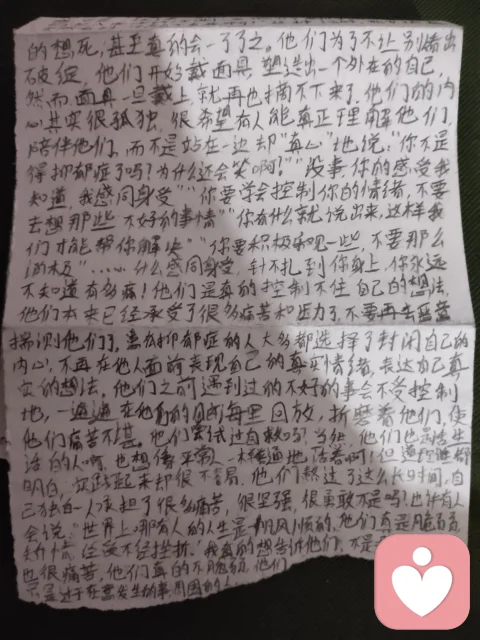 的想死，甚至真的会一了了之。他们为了不让别人看出
破绽，他们开始戴面具，塑造出一个外在的自己，
然而面具一旦戴上，就再也摘不下来了，他们的内
心其实很孤独，很希望有人能真正理解他们，
陪伴他们，而不是站在一边却"真心"地说："你不是
得抑郁症了吗？为什么还会笑啊？""没事，你的感受我
知道，我感同身受""你要学会控制你的情绪，不要
去想那些不好的事情""你有什么就说出来，这样我
们才能帮你解决""你要积极乐观一些，不要那么
消极"……什么感同身受，针不扎到你身上，你永远
不知道有多痛！他们是真的控制不住自己的想法，
他们本来已经承受了很多痛苦和压力了，不要再去恶意
揣测他们了，患有抑郁症的人大多都选择了封闭自己的
内心，不再在他人面前表现自己的真实情绪，表达自己真
实的想法，他们之前遇到过的不好的事会不受控制
地，一遍遍在他们的脑海里回放，折磨着他们，使
他们痛苦不堪，他们尝试过自救吗？当然，他们也是活生
活的人啊，也想像平常人一样普通地活着啊！但道理谁都
明白，实践起来却很不容易，他们熬过了这么长时间，自
己独自一人承担了很多痛苦，很坚强，很勇敢不是吗？也许有人
会说："世界上哪有人的人生是一帆风顺的，他们真是脆弱
经受不经挫折，"我真的想告诉他们，不是
也很痛苦，他们真的不脆弱，他们